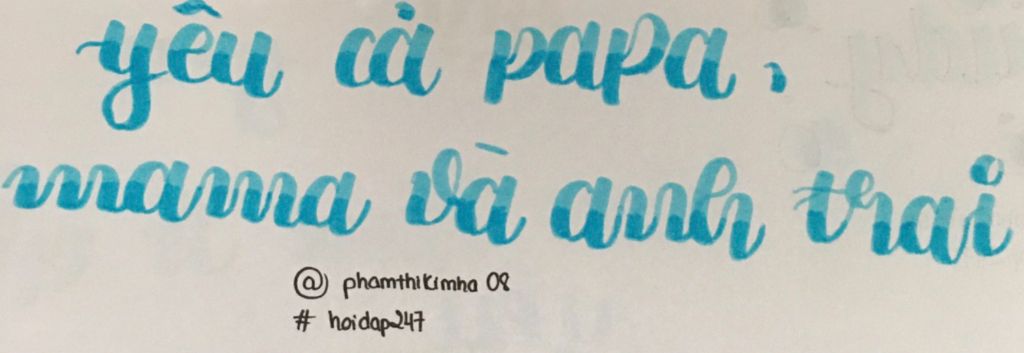 yêu cả papa,
mama và anh trai
@ phamthikimha 08
# hoidap247